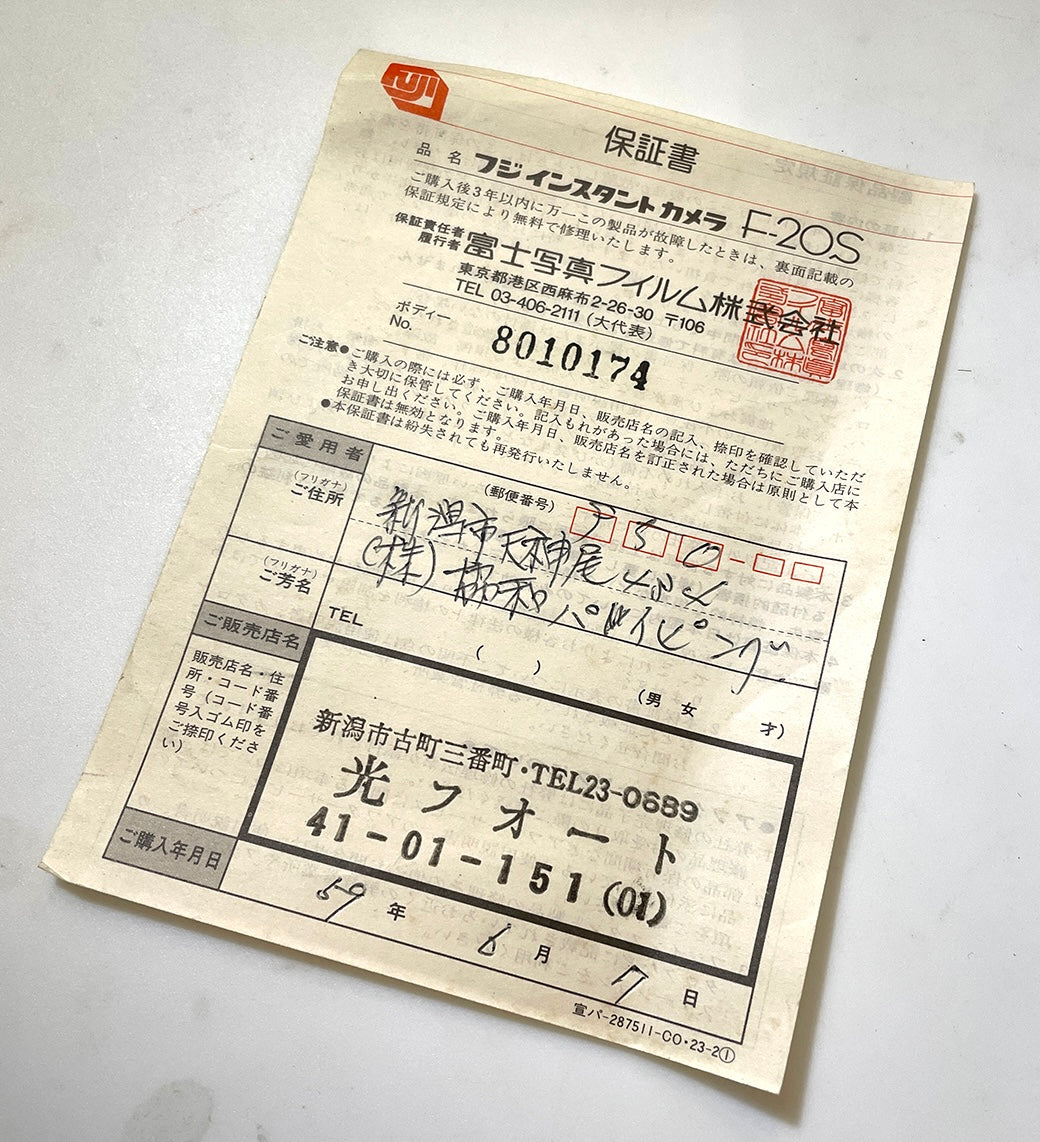 FUJI
保証書
品名 フジインスタントカメラ F-20S
ご購入後3年以内に万一この製品が故障したときは、裏面記載の
保証規定により無料で修理いたします。
保証責任者
履行者 富士写真フイルム株式会社
東京都港区西麻布2-26-30 〒106
TEL 03-406-2111 (大代表)
ボディー
No. 8010174
ご注意●ご購入の際には必ず、ご購入年月日、販売店名の記入、捺印を確認していただ
き大切に保管してください。記入もれがあった場合には、ただちにご購入店に
お申し出ください。ご購入年月日、販売店名を訂正された場合は原則として本
保証書は無効となります。
●本保証書は紛失されても再発行いたしません。
ご愛用者
(フリガナ)
ご住所
(郵便番号) 950-
新潟市天神尾
(フリガナ)
ご芳名
(株) パイピング
TEL ( ) (男 女 才)
ご販売店名
販売店名・住
所・コード番
号(コード番
号入ゴム印を
ご捺印くださ
い)
新潟市古町三番町・TEL23-0689
光フォート
41-01-151(01)
ご購入年月日
59年 6月 7日
宣パ-287511-CO・23-2①